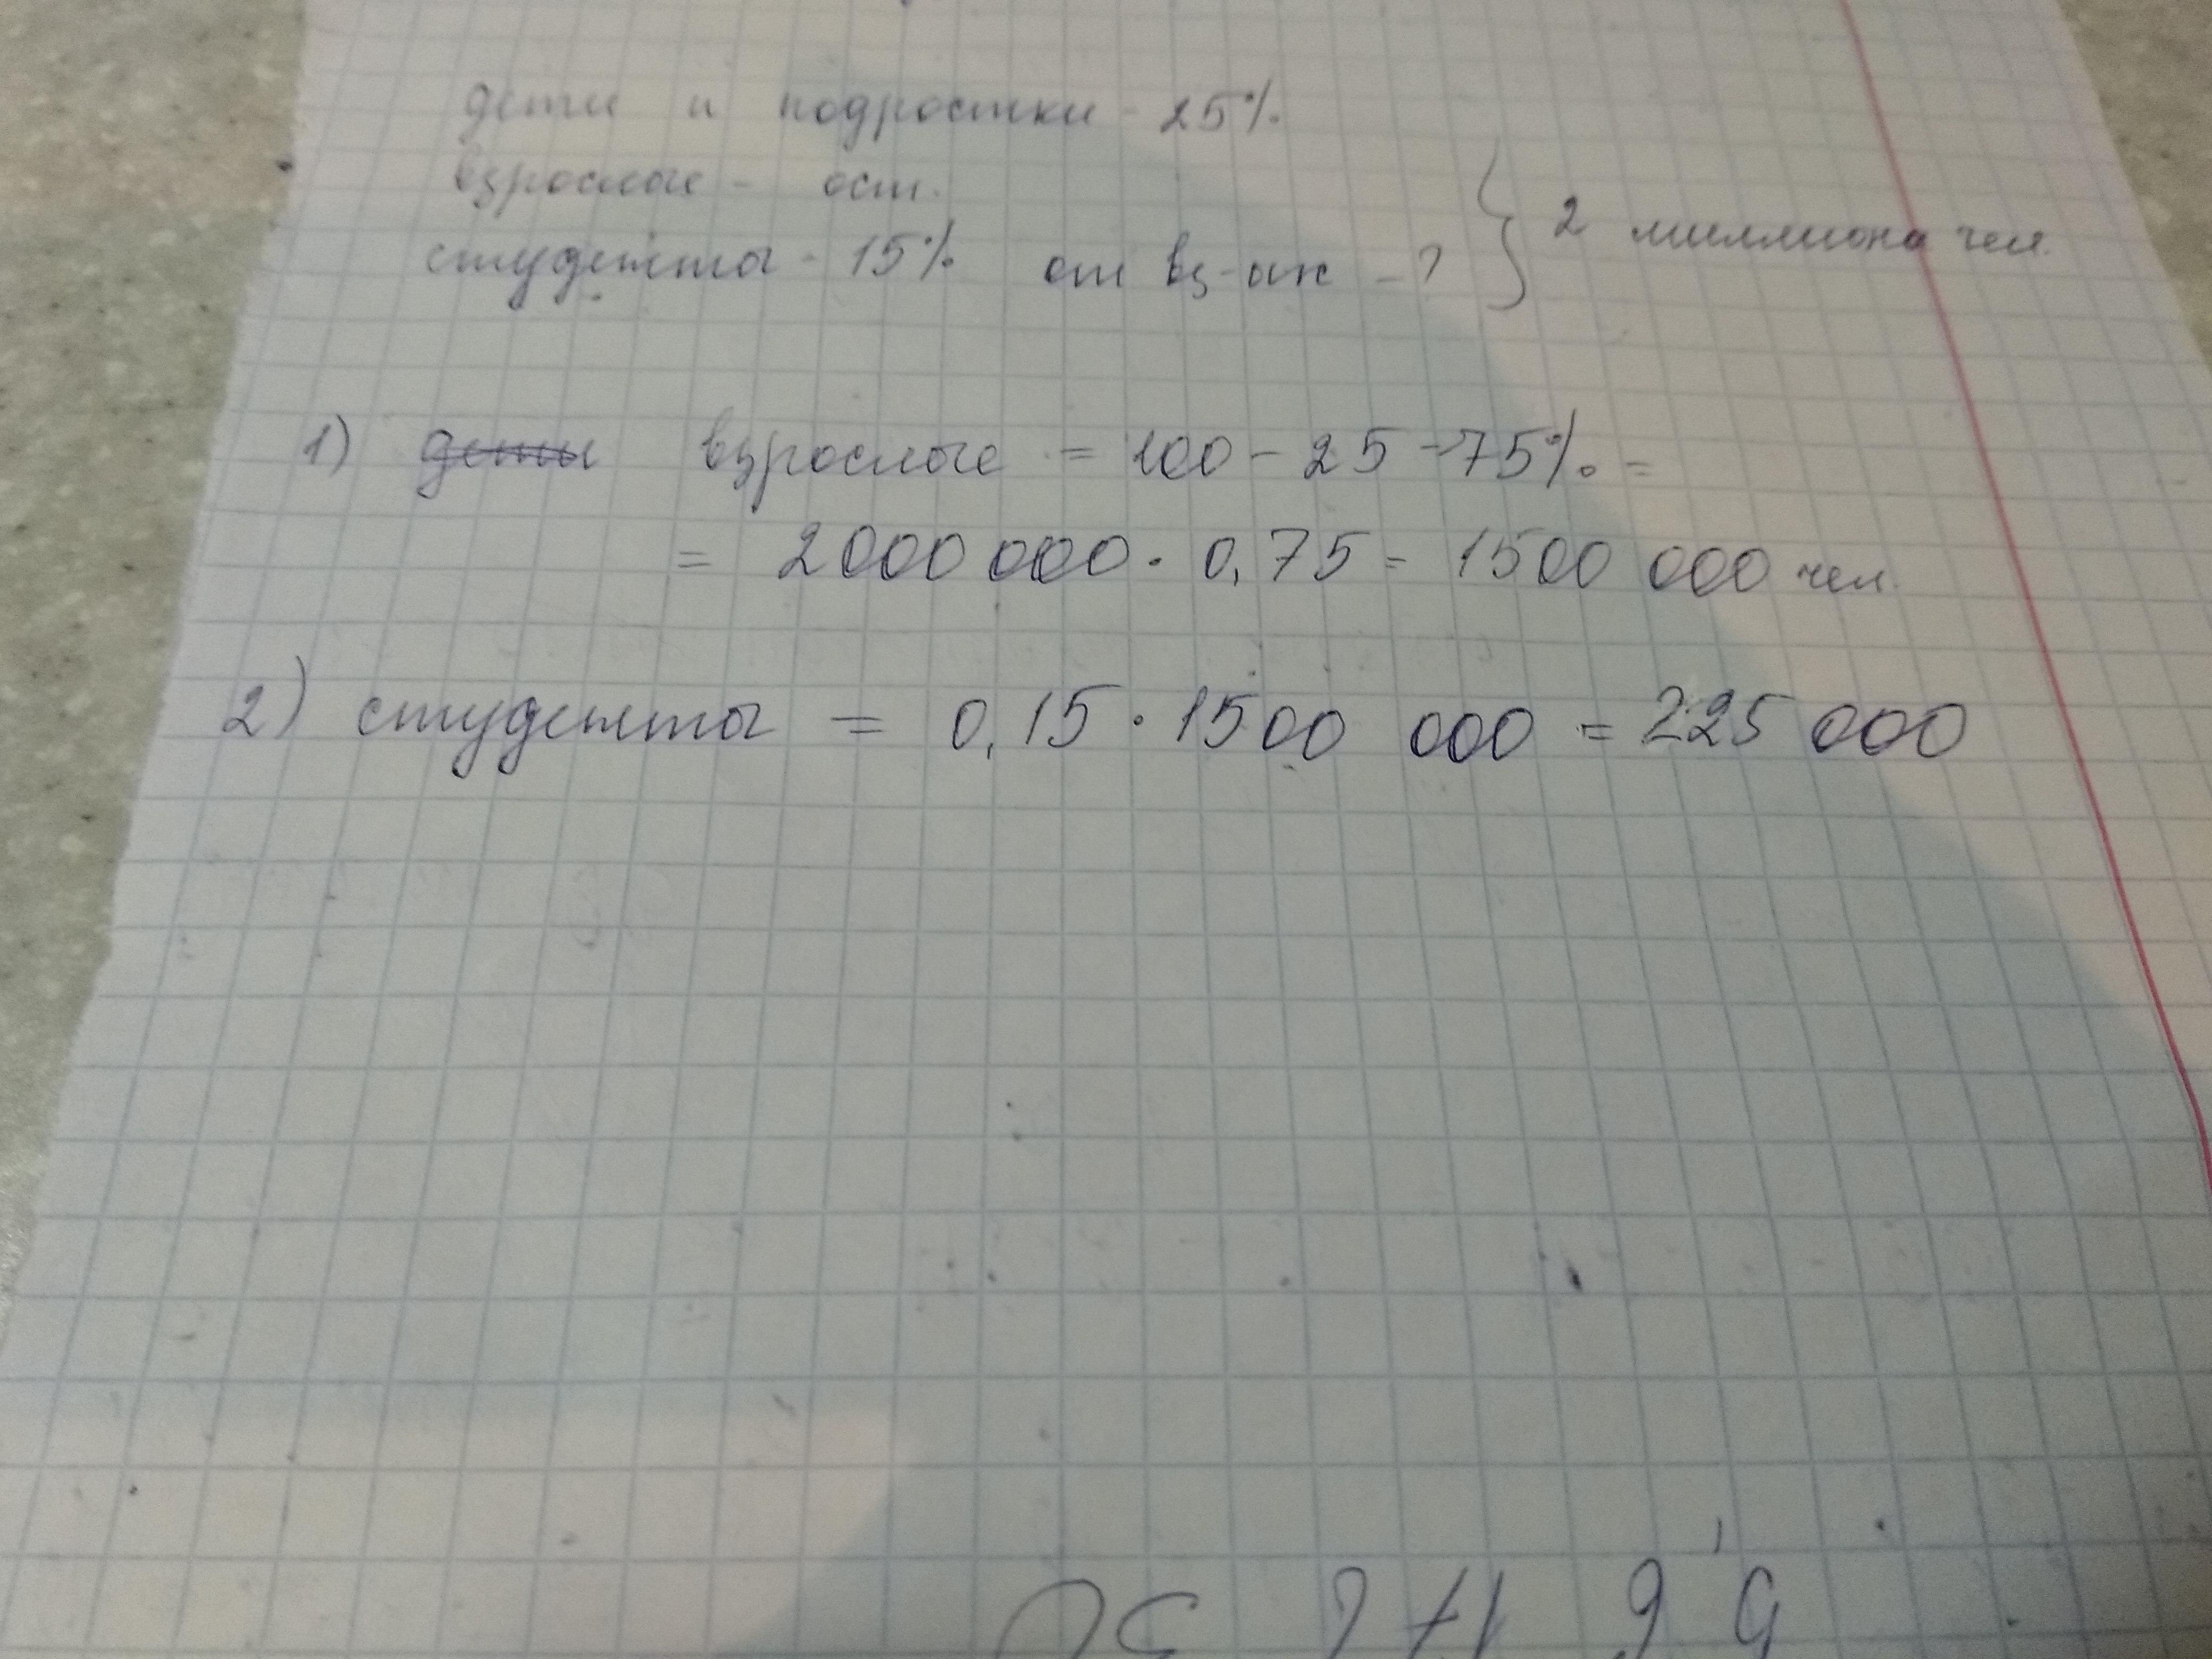 дети и подростки - 25%
взрослые - ост.
студенты - 15% от вз-ых - ?
2 миллиона чел.
1) дети взрослые = 100 - 25 = 75% =
= 2000 000 · 0,75 = 1500 000 чел.
2) студенты = 0,15 · 1500 000 = 225 000